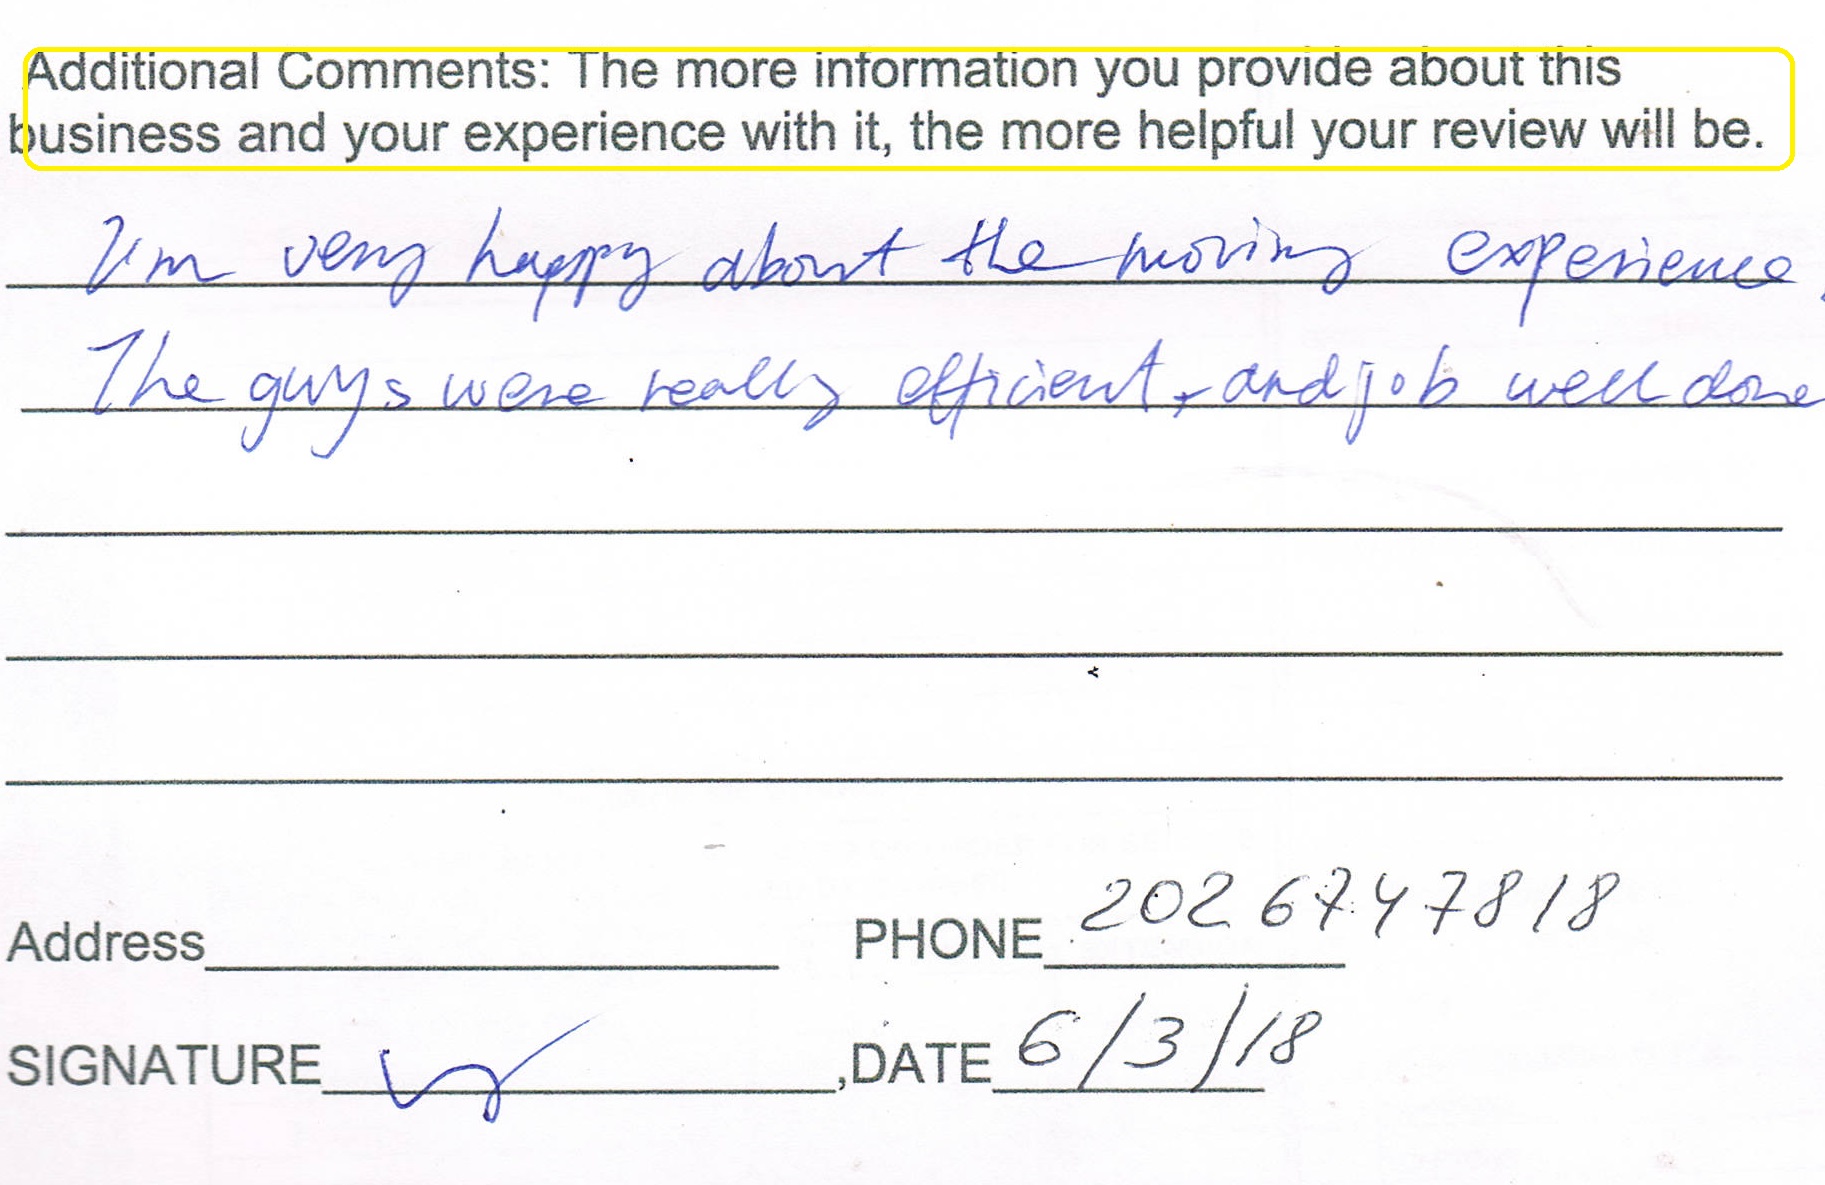 Additional Comments: The more information you provide about this
business and your experience with it, the more helpful your review will be.
I'm very happy about the moving experience.
The guys were really efficient, and job well done
Address PHONE 202 674 7818
SIGNATURE ,DATE 6/3/18